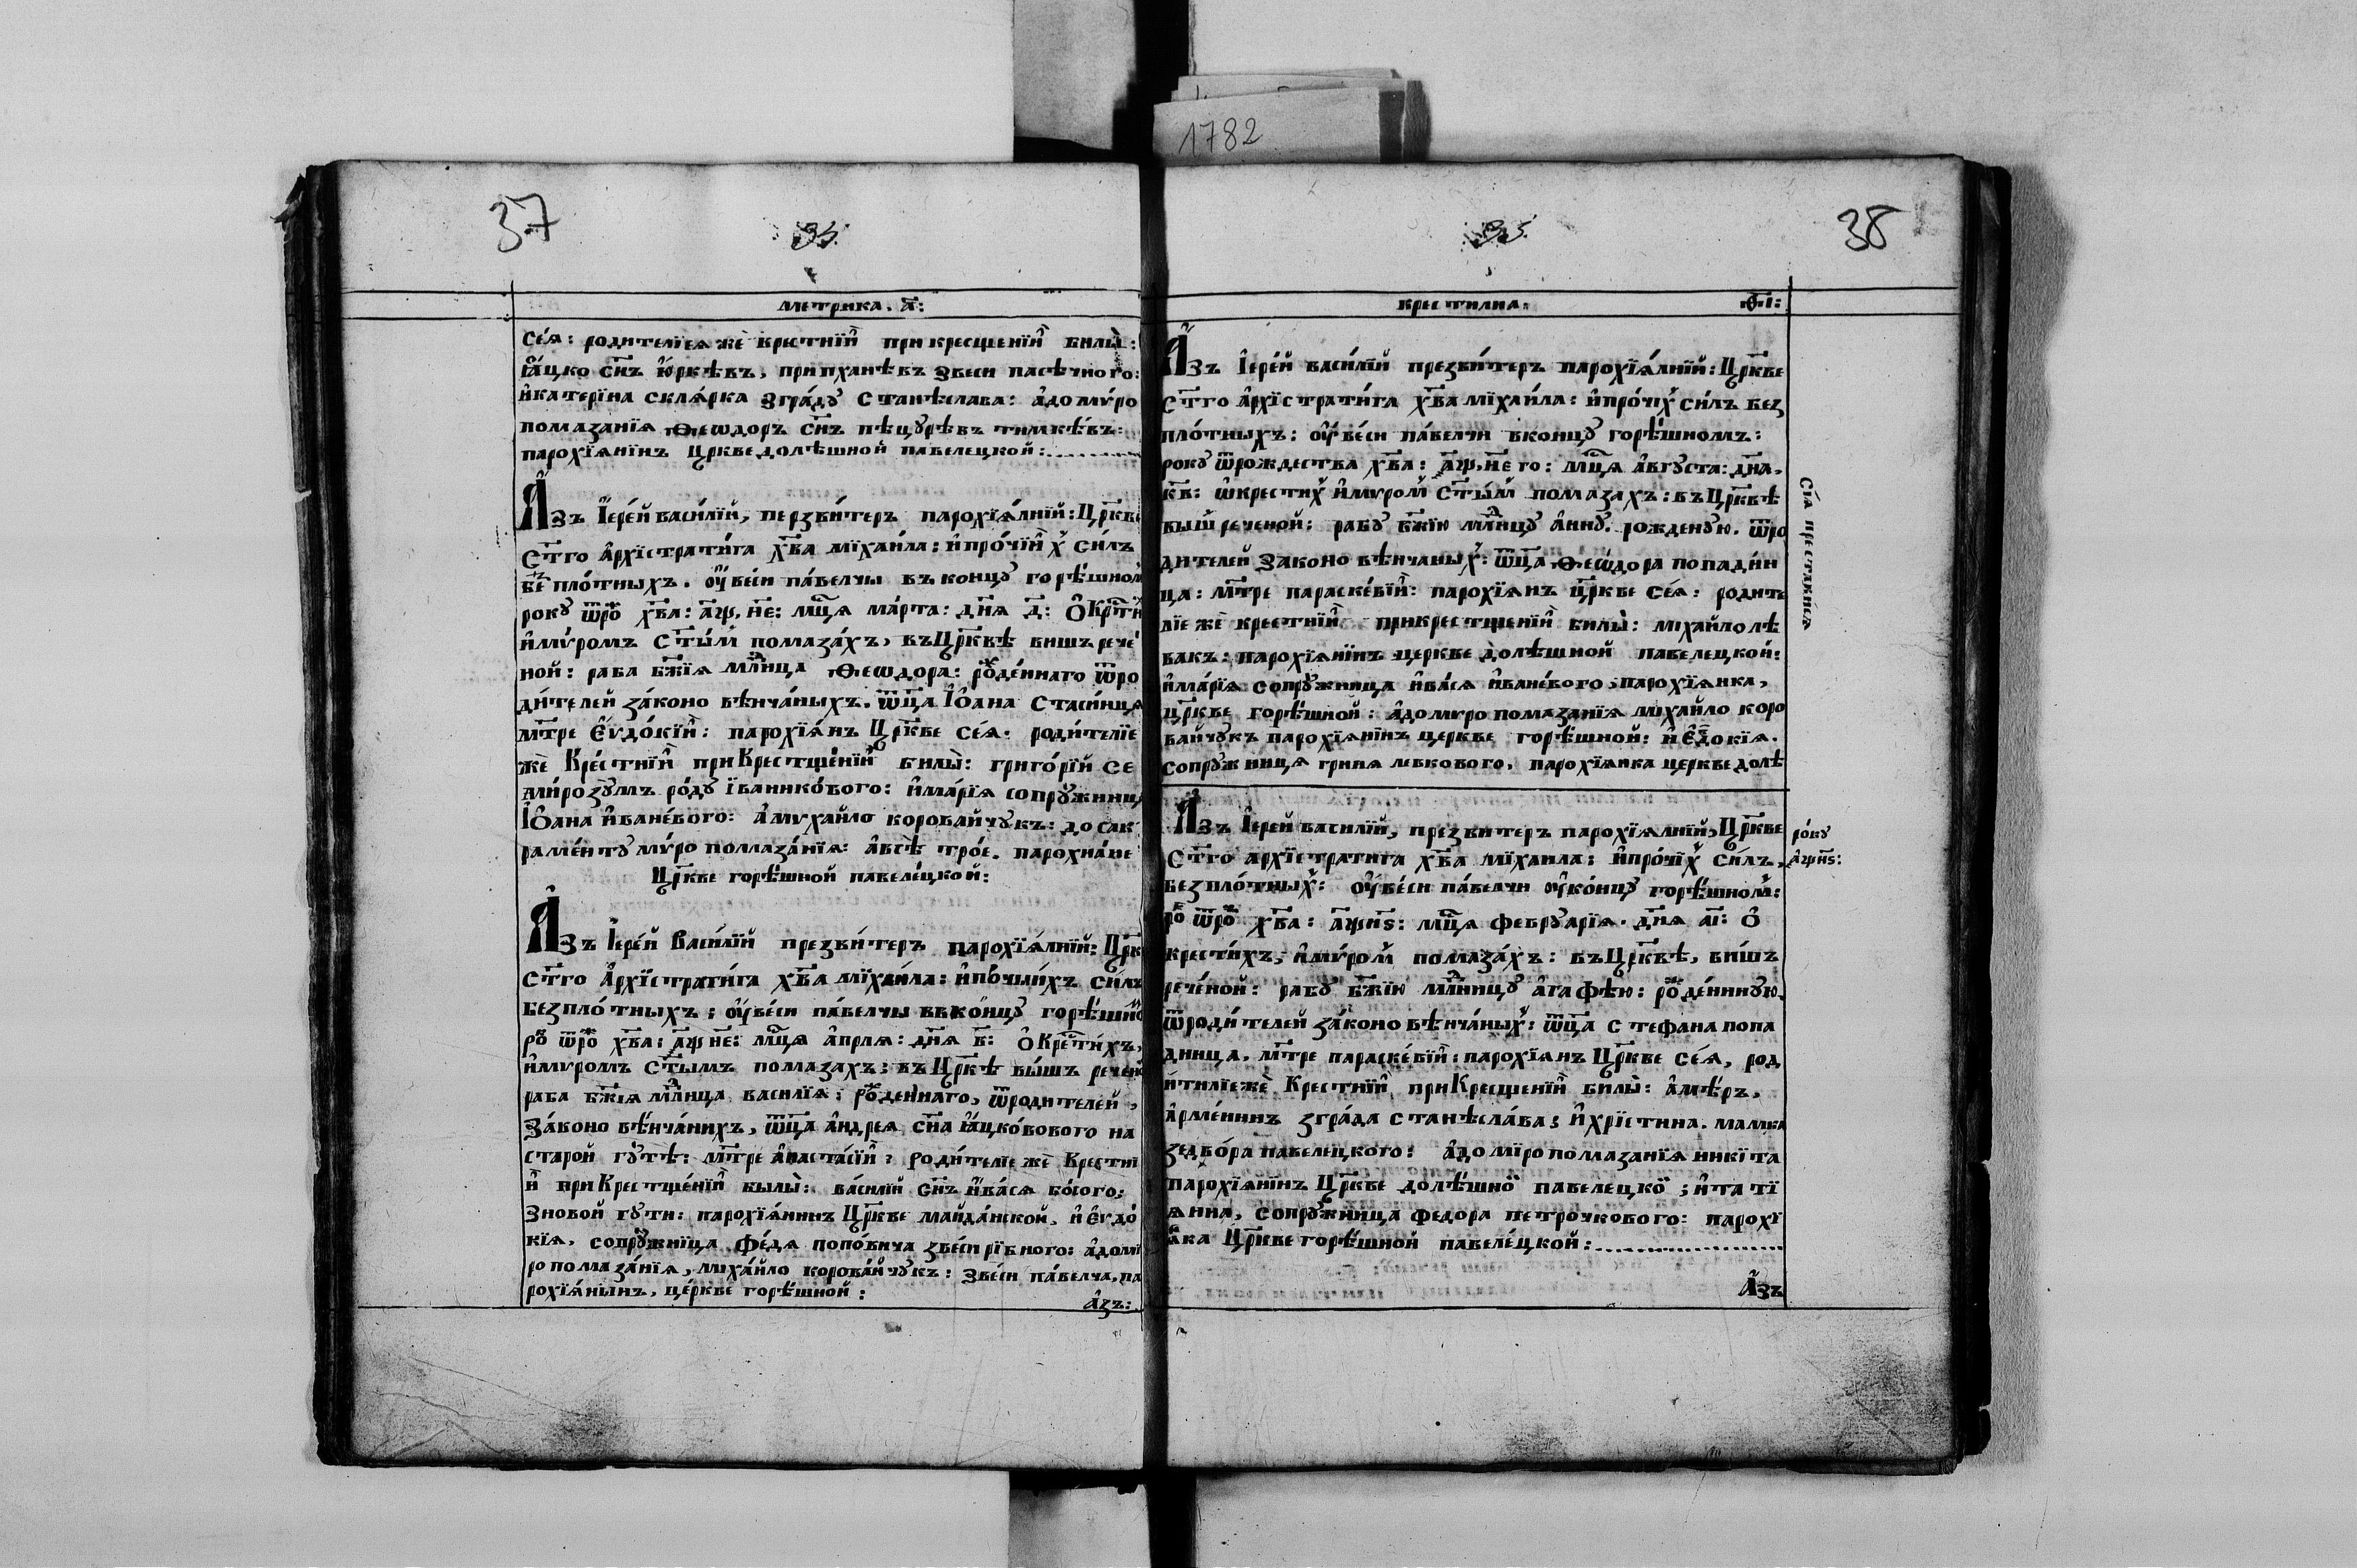 1782
37
метрика. а҃:
сéѧ: родителїеѧ жѐ крестнїй̑ при крещенїй̑ билы̀:
Ꙗ҆цко сн҃ъ ю҆ркѣвъ, припханѣвъ звеси пасѣчного:
и҆катерїна склѧ́рка згра́ду станѣслава: а҆до мѵ́ро
помазанїѧ ѳеѡдоръ сн҃ъ пѣцурѣвъ тимкѣвъ:
парохїѧнїнъ Цр҃кве долѣшной павелецкой:
А҆зъ І҆ерéй васи́лїй, перзви́теръ парохїѧ́лнїй: Цр҃кве
Ст҃го а҆рхїстрати́га хв҃а мїхаи́ла: и҆про́чїй̑ х̾ си́лъ
без̾пло́тныхъ. оу҆ вéси па́велчы въ концу горѣ́шном̾
року ѿро́ж̾ хв҃а: аѱ҃, н҃е: мц҃ѧ ма́рта: дн҃ѧ д҃: О҆крⷭ҇ти́х̾
и҆мѵ́ромъ ст҃ы́м̾ помаза́хъ, въ Цр҃квѣ вишъ речé
ной: раба бж҃їѧ млⷣнца Ѳеѡдора: рⷪ҇ждéннаго ѿро
ди́телей за́коно вѣнча́ныхъ. ѿц҃а І҆ѻ҆ана Стаси́нцѧ
мт҃ре Е҆ѵдо́кїй̑: парохїѧ́нъ Цр҃кве сéѧ. роди́телїе
жѐ Крéстнїй̑ при Крестщéнїй̑ билы̀: григо́рїй се
ми́розумъ ро́ду їванико́вого: и҆ма́рїѧ сопру́жница
І҆ѻ҆ана и҆ванéвого: а҆мухайло коровайчукъ: до сак
рамéнту мѵ́ро помаза́нїѧ: а҆всѣ̀ тро́е. парохиа́не
Цр҃кве горѣ́шной павелéцкой:
А҆зъ І҆ерéй Васи́лїй презви́теръ парохїѧ́лнїй: Црк҃
Ст҃го А҆рхїстрати́га хв҃а мїхаи́ла: и҆про́чыихъ си́лъ
безпло́тныхъ: оу҆вéси па́велчы в҆ко́нцу горѣ́шно
ро́к̾ ѿро́ж̾ хв҃а: аѱ҃ н҃е: мц҃ѧ а҆прлѧ: дн҃ѧ в҃: О҆Крⷭ҇ти́хъ,
и҆мѵромъ ст҃ымъ помазахъ: въ Цр҃кѣ вы́шъ речен̾
раба бж҃їѧ млⷣнца василїѧ: рⷪ҇жденнаго, ѿродителей,
За́коно вѣнча́нихъ, ѿц҃а а҆ндреѧ сн҃а Ꙗ҆цко́вового на
старой гутѣ: мт҃ре а҆наста́сїй̑: роди́телїе жѐ Крестнї
й̑ при Крестщéнїй̑ былы̀: ва́силїй сн҃ъ и҆ва́сѧ ко́сого:
зновой гути: парохїѧ́нинъ Цр҃кве майда́нской, и҆ е҆ѵдо́
кїѧ, сопру́жнїца фéдѧ попо́вича звéси рївного: а҆домї
ро помаза́нїѧ, миха́йло корова́йчукъ: звéси па́велча, па
рохїѧ́нынъ, цéркве горѣ́шной:
а҆зъ:
38
крестилна:
ѳ҃і:
А҆зъ І҆ерéй васи́лїй презви́теръ парохїѧ́лнїй: Цр҃кве
Ст҃го а҆рхїстрати́га хв҃а мїхаи́ла: и҆про́чїх̾ си́лъ без
пло́тныхъ: оу҆вéси па́велчи вконцу горѣ́шномъ:
року ѿрождества хв҃а: аѱ҃, н҃е го: мц҃ѧ а҆вгуста: дн҃ѧ,
к҃в: ѡ҆крестих̾ и҆муром̾ ст҃ы́м̾ помазахъ: въ Цр҃квѣ
выш̾реченой: рабу бж҃їю млⷣнцу а҆нну. рожденую. ѿро
дителей Законо вѣнчаных̾: ѿц҃а Ѳеѡ́дора попади́н
ца: мт҃ре параскéвїй̑: парохїѧнъ цр҃кве сéѧ: родите
лїе жѐ крестнїй̑ прикрестщенїй̑ билы̀: міхайло лѣ
вакъ: парохїѧнїнъ церкве долѣшной павелецкой:
и҆ма́рїѧ сопру́жница и҆ва́сѧ и҆ванéвого, парохїѧнка,
цр҃кве горѣ́шной: а҆домуро помазанїѧ міхайло коро
вайчукъ парохїѧнїнъ церкве горѣ́шной: и҆ е҆вдокїѧ.
сопружницѧ гринѧ левкового, парохїѧнка церкве долѣ
Сїѧ престависѧ
А҆зъ І҆ерей василїй, презвитеръ парохїѧлнїй, Цр҃кве
Ст҃го архїстратига хв҃а мїхаила: и҆про́чїх̾ си́лъ,
безпло́тных̾: оу҆вéси па́велчи оу҆ко́нцу горѣ́шном̾:
ро́к̾ ѿро́ж̾ хв҃а: аѱн҃ѕ: мц҃ѧ февруарїѧ. дн҃ѧ а҃і: О҆
крести́хъ, и҆мѵ́ром̾ помаза́хъ: въ Цр҃квѣ, вишъ
речéной: рабу бж҃їю млⷣницу а҆гафѣю: рⷪ҇ждéнную.
ѿроди́телей за́коно вѣнча́ных̾: ѿц҃а стефана попа
динца, мт҃ре параскéвїй̑: парохїѧнъ Цр҃кве сéѧ, род
и́тилїе жѐ Крестнїй̑ при Крещенїй̑ билы̀: а҆мѣ́ръ,
а҆рмéнинъ згра́да станѣсла́ва: и҆хрїстина. мамка
зедво́ра павелецкого: а҆домїро помазанїѧ никїта
парохїѧнїнъ Цр҃кве долѣ́шно̆ павелецко̆; и҆татї
ѧнна, сопру́жница федора петрочкового: парохї
ꙗ҆ка Цр҃кве горѣ́шной павелéцкой:
А҆зъ
ро́ку
аѱн҃ѕ: